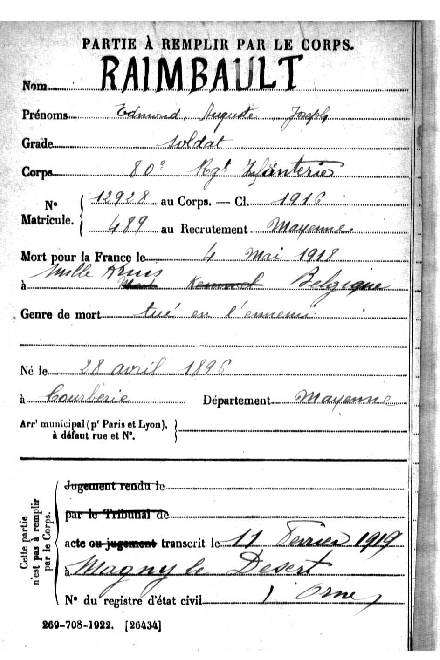 PARTIE À REMPLIR PAR LE CORPS.
Nom RAIMBAULT
Prénoms Edmond Auguste Joseph
Grade soldat
Corps 80e Rgt Infanterie
N° Matricule. { 12928 au Corps. — Cl. 1916
489 au Recrutement Mayenne
Mort pour la France le 4 Mai 1918
à Mont Kemmel Belgique
Genre de mort tué en l'ennemi
Né le 28 avril 1896
à Courberie Département Mayenne
Arrt municipal (pr Paris et Lyon), à défaut rue et N°. }
Cette partie n'est pas à remplir par le Corps.
Jugement rendu le
par le Tribunal de
acte ou jugement transcrit le 11 Février 1919
à Magny le Desert
N° du registre d'état civil 1 Orne
269-708-1922. [26434]